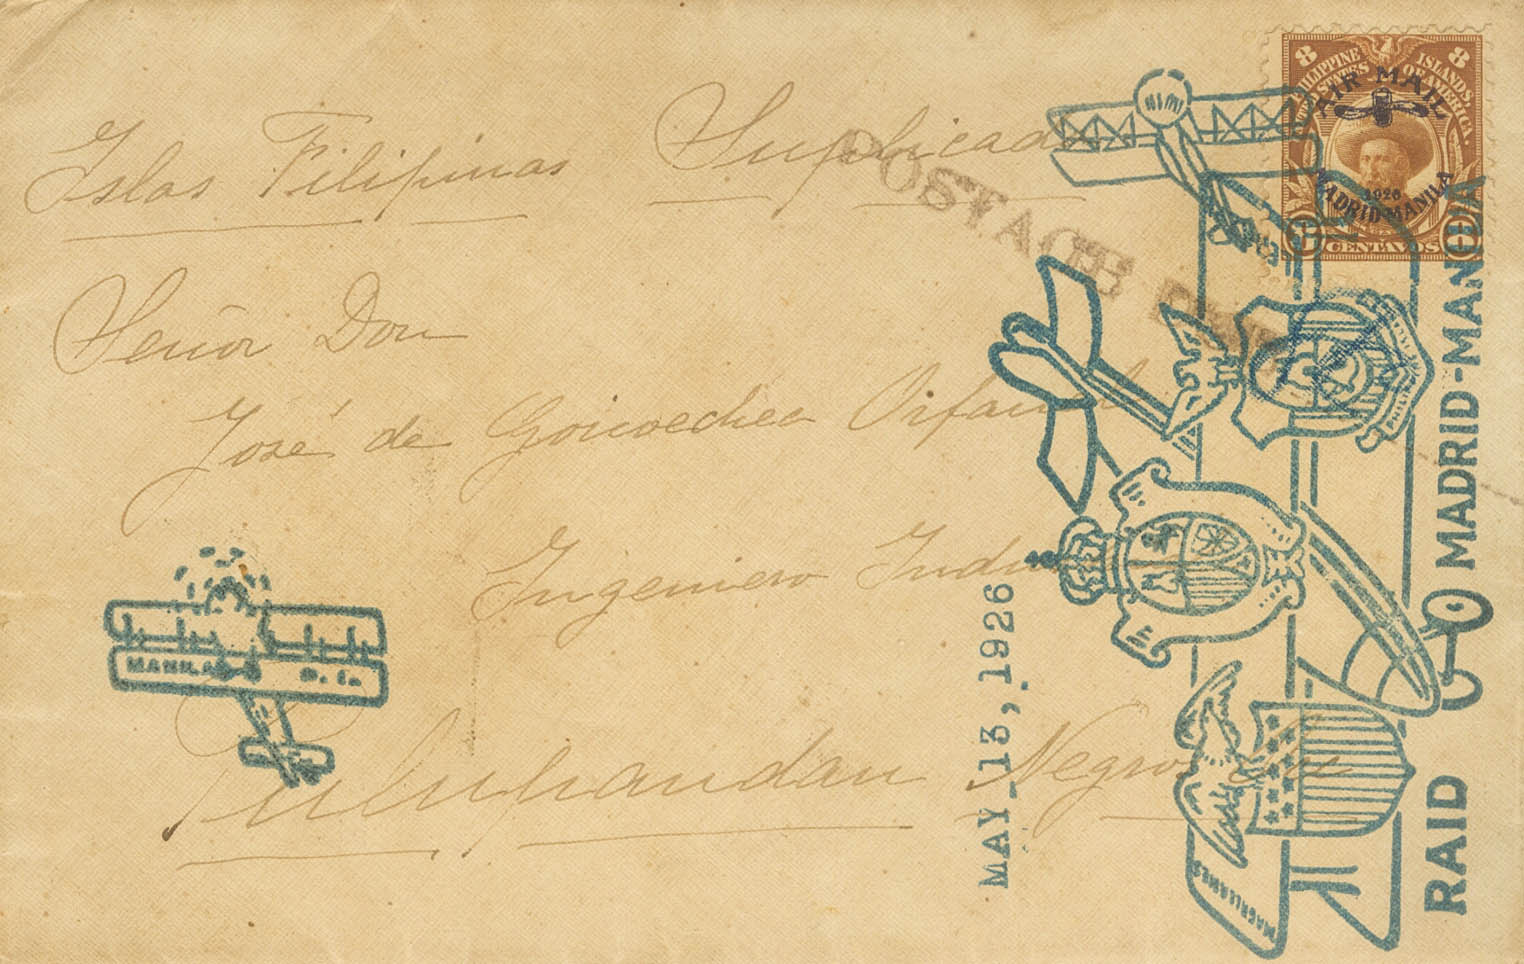 Islas Filipinas Suplicada
Señor Don
José de Goicoechea
Ingeniero
Pulupandan Negros
POSTAGE
8 8
PHILIPPINE ISLANDS,
UNITED STATES OF AMERICA.
AIR MAIL
1926
MADRID-MANILA
CENTAVOS
RAID MADRID-MANILA
MAY 13, 1926
MAGALLANES
MANILA